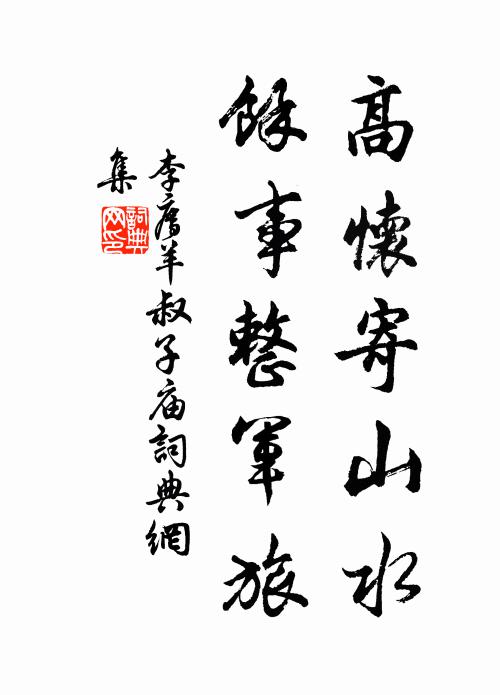 高懷寄山水
餘事整軍旅
李廌羊叔子庙詞典網
集
詞典
网印